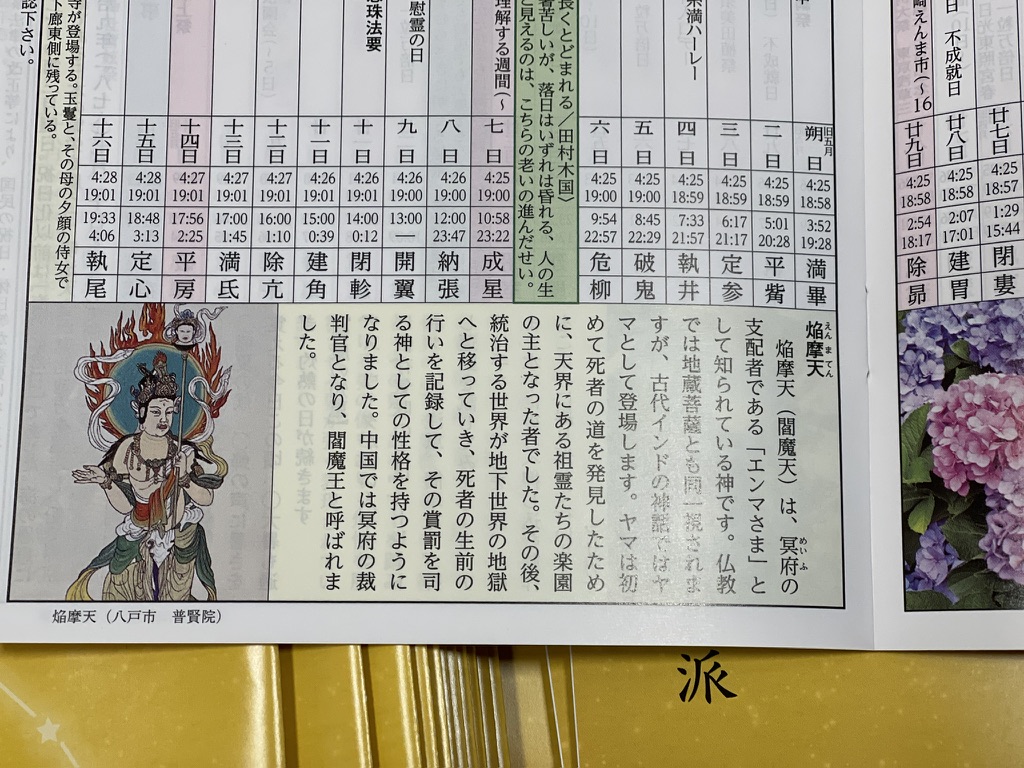 廿七日
4:25
18:57
1:29
15:44
閉
婁
日 不成就日
廿八日
4:25
18:58
2:07
17:01
建
胃
えんま市(〜16
廿九日
4:25
18:58
2:54
18:17
除
昴
旧五月
朔日
4:25
18:58
3:52
19:28
満
畢
二日
4:25
18:59
5:01
20:28
平
觜
三日
4:25
18:59
6:17
21:17
定
参
満ハーレー
四日
4:25
18:59
7:33
21:57
執
井
五日
4:25
19:00
8:45
22:29
破
鬼
六日
4:25
19:00
9:54
22:57
危
柳
長くとどまれる/田村木国〉
苦しいが、落日はいずれは昏れる、人の生
と見えるのは、こちらの老いの進んだせい。
理解する週間(〜
七日
4:25
19:00
10:58
23:22
成
星
八日
4:26
19:00
12:00
23:47
納
張
慰霊の日
九日
4:26
19:00
13:00
—
開
翼
十日
4:26
19:01
14:00
0:12
閉
軫
珠法要
十一日
4:26
19:01
15:00
0:39
建
角
十二日
4:26
19:01
16:00
1:10
除
亢
十三日
4:27
19:01
17:00
1:45
満
氐
十四日
4:27
19:01
17:56
2:25
平
房
十五日
4:28
19:01
18:48
3:13
定
心
十六日
4:28
19:01
19:33
4:06
執
尾
寺が登場する。玉鬘と、その母の夕顔の侍女で
下廊東側に残っている。
認下さい。
焔摩天
えんまてん
焔摩天(閻魔天)は、冥府の
めいふ
支配者である「エンマさま」と
して知られている神です。仏教
では地蔵菩薩とも同一視されま
すが、古代インドの神話ではヤ
マとして登場します。ヤマは初
めて死者の道を発見したため
に、天界にある祖霊たちの楽園
の主となった者でした。その後、
統治する世界が地下世界の地獄
へと移っていき、死者の生前の
行いを記録して、その賞罰を司
る神としての性格を持つように
なりました。中国では冥府の裁
判官となり、閻魔王と呼ばれま
した。
焔摩天(八戸市 普賢院)
派